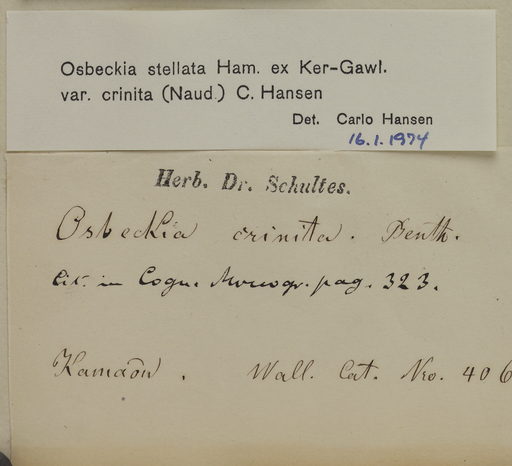 Osbeckia stellata Ham. ex Ker-Gawl.
var. crinita (Naud.) C. Hansen
Det. Carlo Hansen
16.1.1974
Herb. Dr. Schultes.
Osbeckia crinita. Benth.
Cit. in Cogn. Monogr. pag. 323.
Kamaon. Wall. Cat. Nro. 406